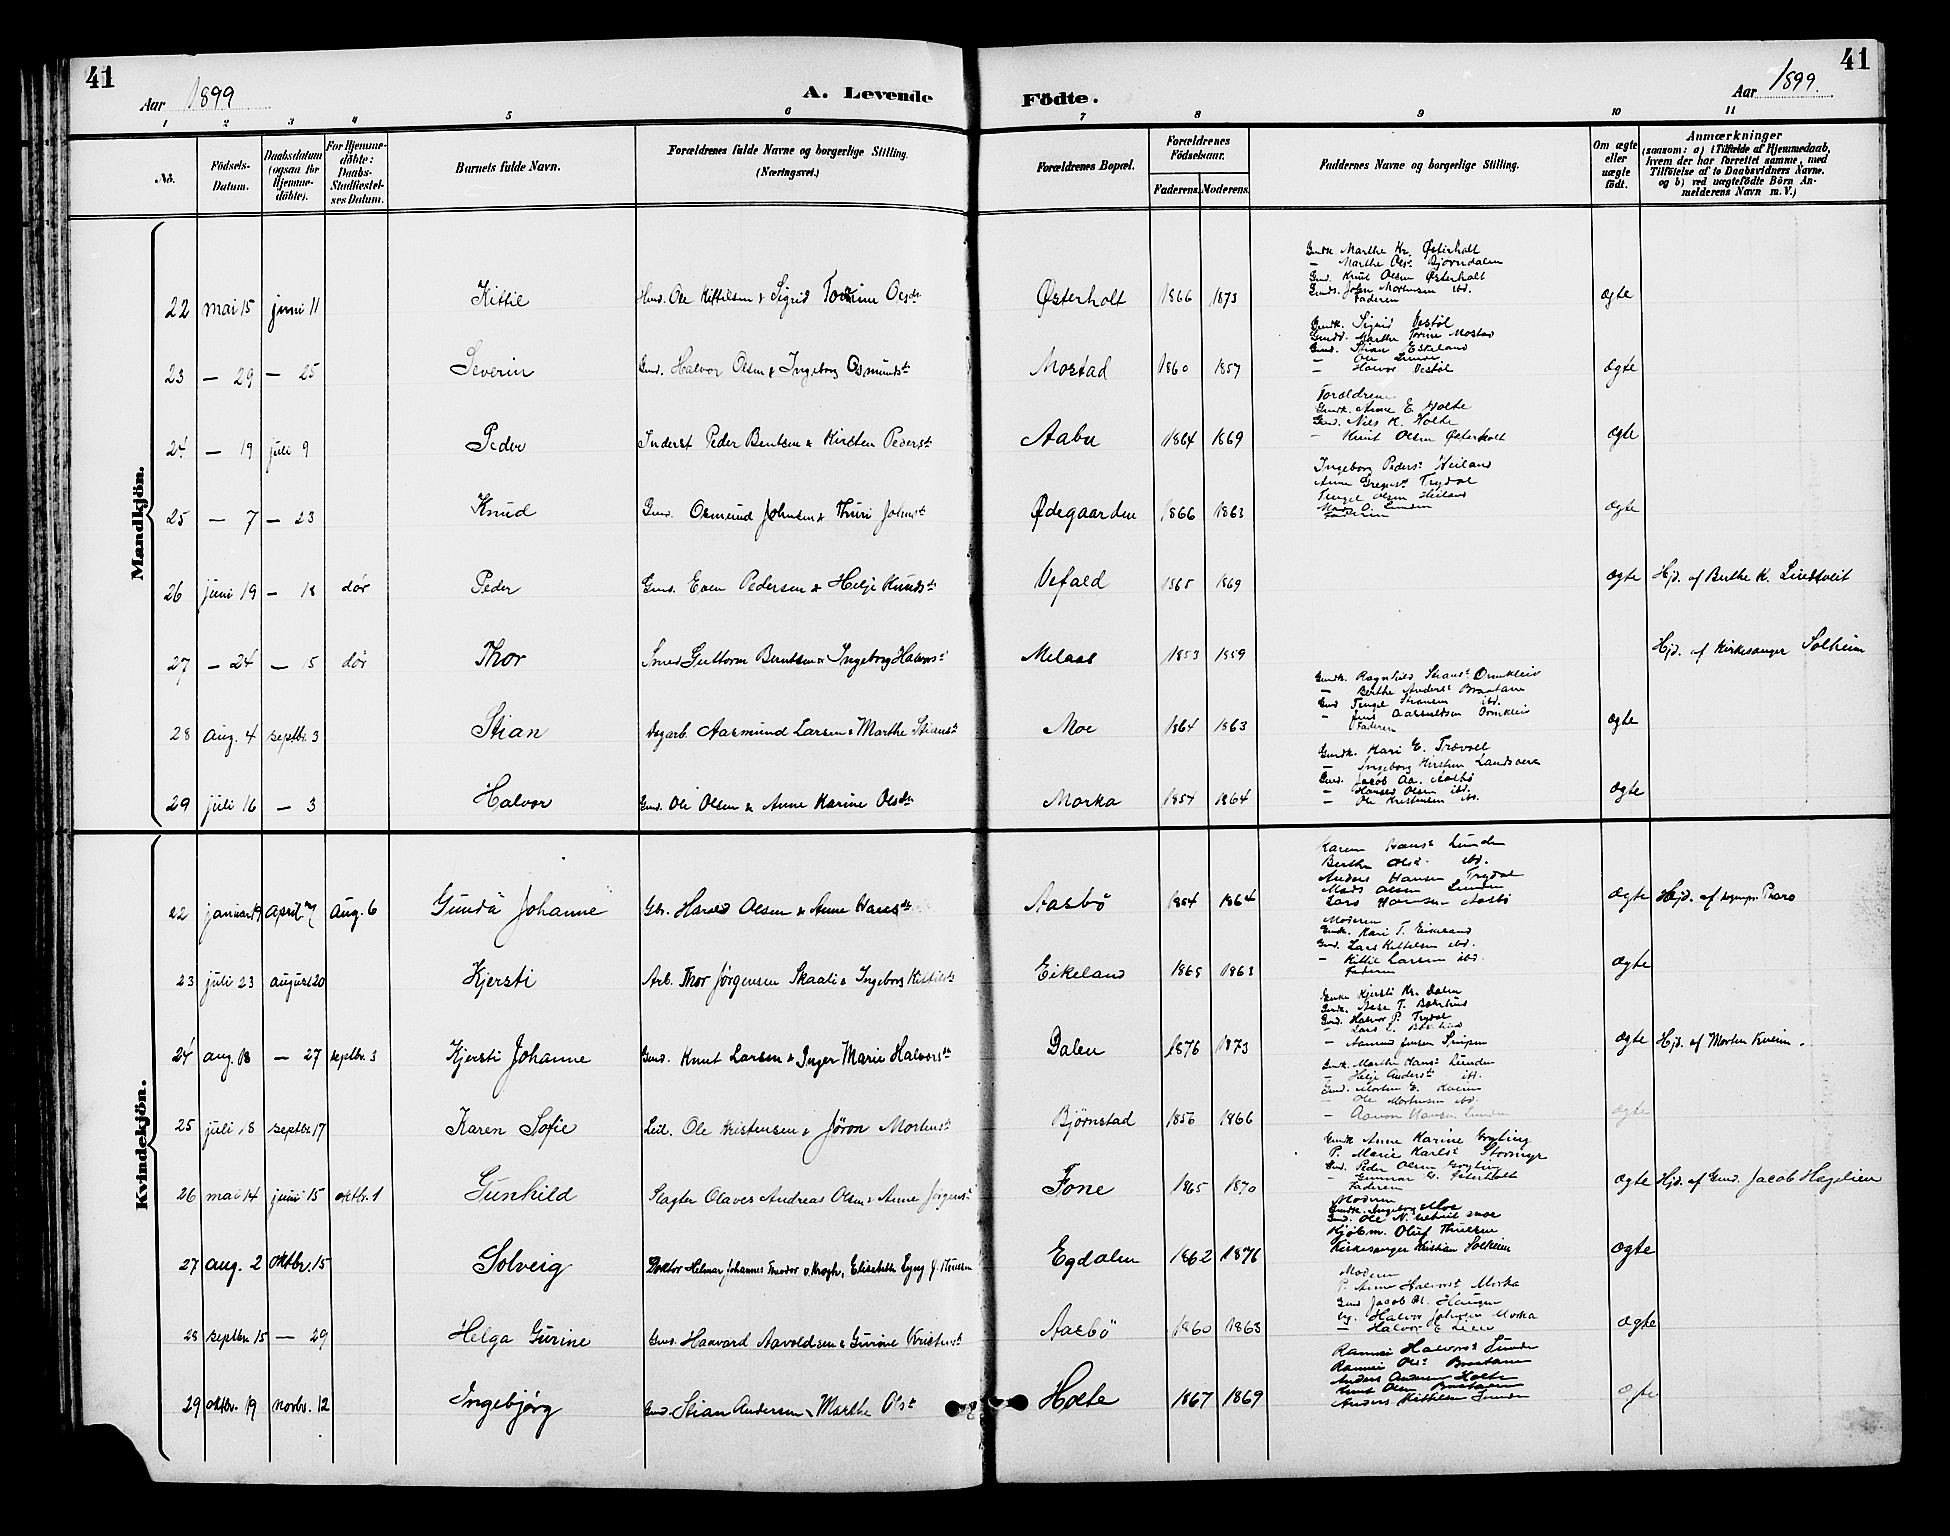 41
41
Aar 1899
A. Levende Födte.
Aar 1899.
1 2 3 4 5 6 7 8 9 10 11
No.
Födsels-Datum.
Daabsdatum (ogsaa for Hjemme-döbte).
For Hjemme-döbte: Daabs-Stadfæstel-ses Datum.
Barnets fulde Navn.
Forældrenes fulde Navne og borgerlige Stilling. (Næringsvei.)
Forældrenes Bopæl.
Forældrenes Födselsaar.
Faderens. Moderens.
Faddernes Navne og borgerlige Stilling.
Om ægte eller uægte födt.
Anmærkninger (saasom: a) i Tilfælde af Hjemmedaab, hvem der har forrettet samme, med Tilföielse af to Daabsvidners Navne, og b) ved uægtefödte Börn An-melderens Navn m. V.)
Mandkjön.
22 mai 15 juni 11 Kittil Ole Kittilsen & Sigrid Olsdr Østerholt 1866 1873 ægte
Gmdk. Marthe Kr. Østerholt
— Marthe Olsd. Bjørndalen
Gmd. Knut Olsen Østerholt
John Mortensen ibd.
Faderen
23 — 29 — 25 Severin Gmd. Halvor Olsen & Ingeborg Osmundsd. Mostad 1860 1857 ægte
Gmdk. Sigrid Vestøl
Marthe Torine Mostad
Gmd. Stian Eskeland
— Ole Lunde
— Halvor Vestøl
24 — 19 juli 9 Peder Inderst Peder Bentsen & Kirsten Pedersd. Aabu 1864 1869 ægte
Forældrene
Gmdk. Anne E. Holte
Gmd. Nils K. Holte
— Knut Olsen Østerholt
25 — 7 — 23 Knud Gmd. Osmund Johnsen & Thuri Johnsd. Ødegaarden 1866 1863 ægte
Ingeborg Pedersd. Heiland
Anne Gregersd. Trydal
Tengel Olsen Heiland
Mads O. Lunden
Faderen
26 juni 19 — 18 dør Peder Gmd. Even Pedersen & Helje Knudsd. Vefald 1865 1869 ægte Hjd. af Berthe K. Lindtveit
27 — 24 — 15 dør Thor Smed Guttorm Berntsen & Ingeborg Halvorsd. Melaas 1853 1859 Hjd. af Kirkesanger Solheim
28 aug. 4 septbr. 3 Stian Dagarb. Aasmund Larsen & Marthe Stiansd. Moe 1864 1863 ægte
Gmdk. Ragnhild Stiansd. Ormkleiv
— Berthe Andersd. Braatane
Gmd Tengel Stiansen ibd.
— Jens Aasmundsen Ormkleiv
Faderen
29 juli 16 — 3 Halvor Gmd. Ole Olsen & Anne Karine Olsdr. Morka 1854 1864 ægte
Gmdk. Kari E. Trovoll
— Ingeborg Kirstine Landsverk
Gmd. Jacob Aa. Aasbø
— Hans Olsen ibd.
— Ole Kristensen ibd.
Kvindekjön.
22 januar 19 april 7 Aug. 6 Gunda Johanne Gbr. Harald Olsen & Anne Hansdr. Aasbø 1854 1864 ægte Hjd. af sognepr. Tharo
Karen Hansd. Lunden
Berthe Olsd. ibd.
Anders Hansen Trydal
Mads Olsen Lunden
Lars Hansen Aasbø
23 juli 23 august 20 Kjersti Arb. Thor Jørgensen Skaali & Ingeborg Kittilsd. Eikeland 1865 1863 ægte
Moderen
Gmdk. Kari T. Eikeland
Gmd. Lars Kittelsen ibd.
— Kittil Larsen ibd.
Faderen
24 aug. 13 — 27 septbr. 3 Kjersti Johanne Gmd. Knut Larsen & Inger Marie Halvorsd. Dalen 1876 1873 ægte Hjd. af Morten Kveim.
Enke Kjersti Kr. Dalen
Gmdk. Aase T. Bakehus
Gmd. Halvor P. Trydal
— Lars L. Bakehus
— Aanund Jensen
25 juli 18 septbr. 17 Karen Sofie Leil. Ole Kristensen & Jøron Mortensd. Bjørnstad 1856 1866 ægte
Gmdk. Marthe Hansd. Lunden
— Helje Andersd. ibd.
Gmd. Morten E. Kveim
— Ole Mortensen ibd.
— Aanon Hansen Lunden
26 mai 14 juni 15 oktbr. 1 Gunhild Slagter Olaves Andreas Olsen & Anne Jørgensd. Fone 1865 1870 ægte Hjd. af Gmd. Jacob Hagelien
Gmdk. Anne Karine Gryting
P. Marie Karlsd. Stormyr
Gmd. Peder Olsen Gryting
— Gunnar G. Østerholt
Faderen
27 aug. 2 oktbr. 15 Solveig Doktor Helmar Johannes Theodor v. Krogh, Elisabeth Lyng J. Egdalen 1862 1876 ægte
Moderen
Gmdk. Ingeborg Moe
Gmd. Ole N. Moe
Kjøbm. Oluf Thuesen
Kirkesanger Kristian Solheim
28 septbr. 15 — 29 Helga Gurine Gmd. Haavard Aavoldsen & Gurine Kristensd. Aasbö 1860 1863 ægte
Moderen
P. Anne Halvorsd. Morka
Gmd Jacob M. Haugen
Ug. Halvor Johnsen Morka
— Halvor E. Lien
29 oktbr. 19 novbr. 12 Ingebjørg Gmd. Stian Andersen & Marthe Olsd. Holte 1867 1869 ægte
Rannei Halvorsd. Lunden
Rannei Olsd. Braatane
Anders Andersen Holte
Knut Olsen Braatane
Anders Kittilsen Lunden